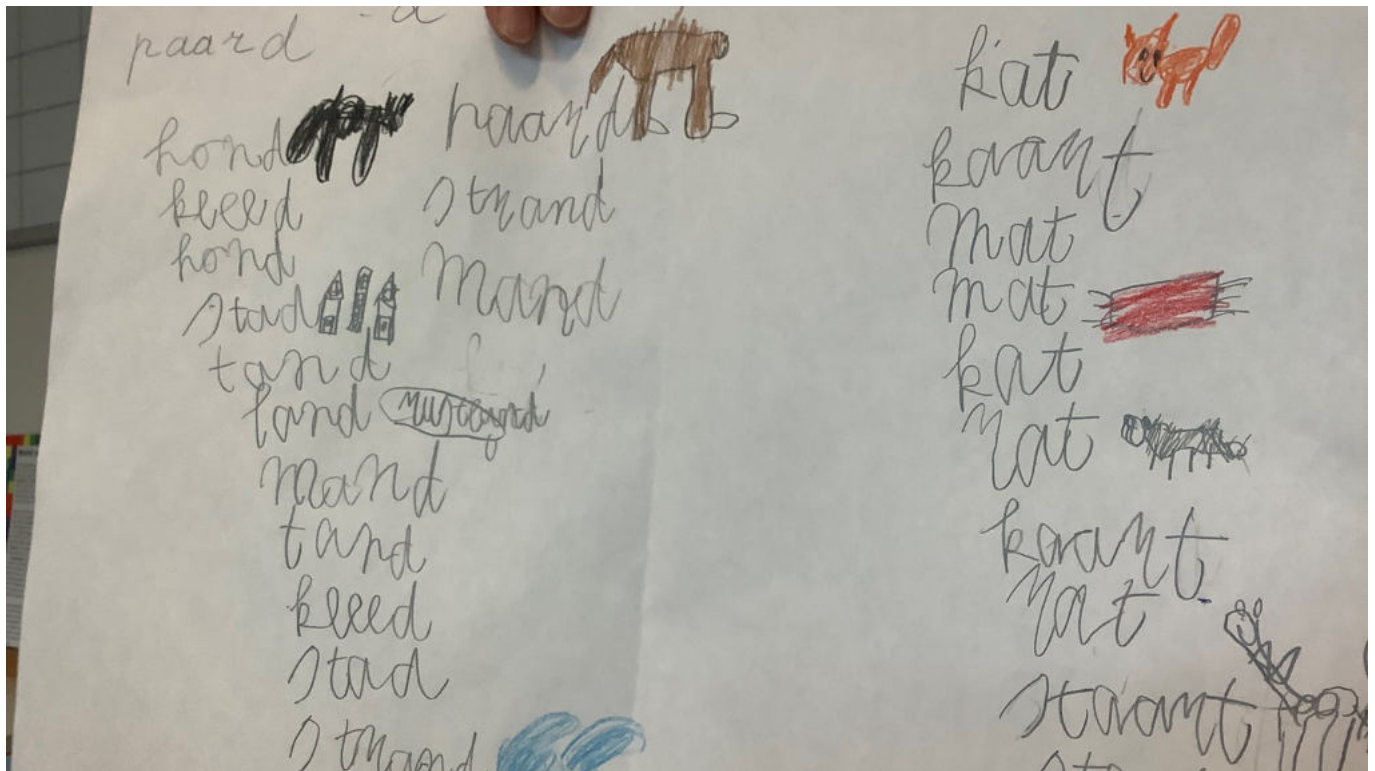 -d
paard
hond
kleed
hond
stad
tand
land
mand
tand
kleed
stad
strand
haard
strand
mand
kat
kaart
mat
mat
kat
rat
kaart
rat
staart